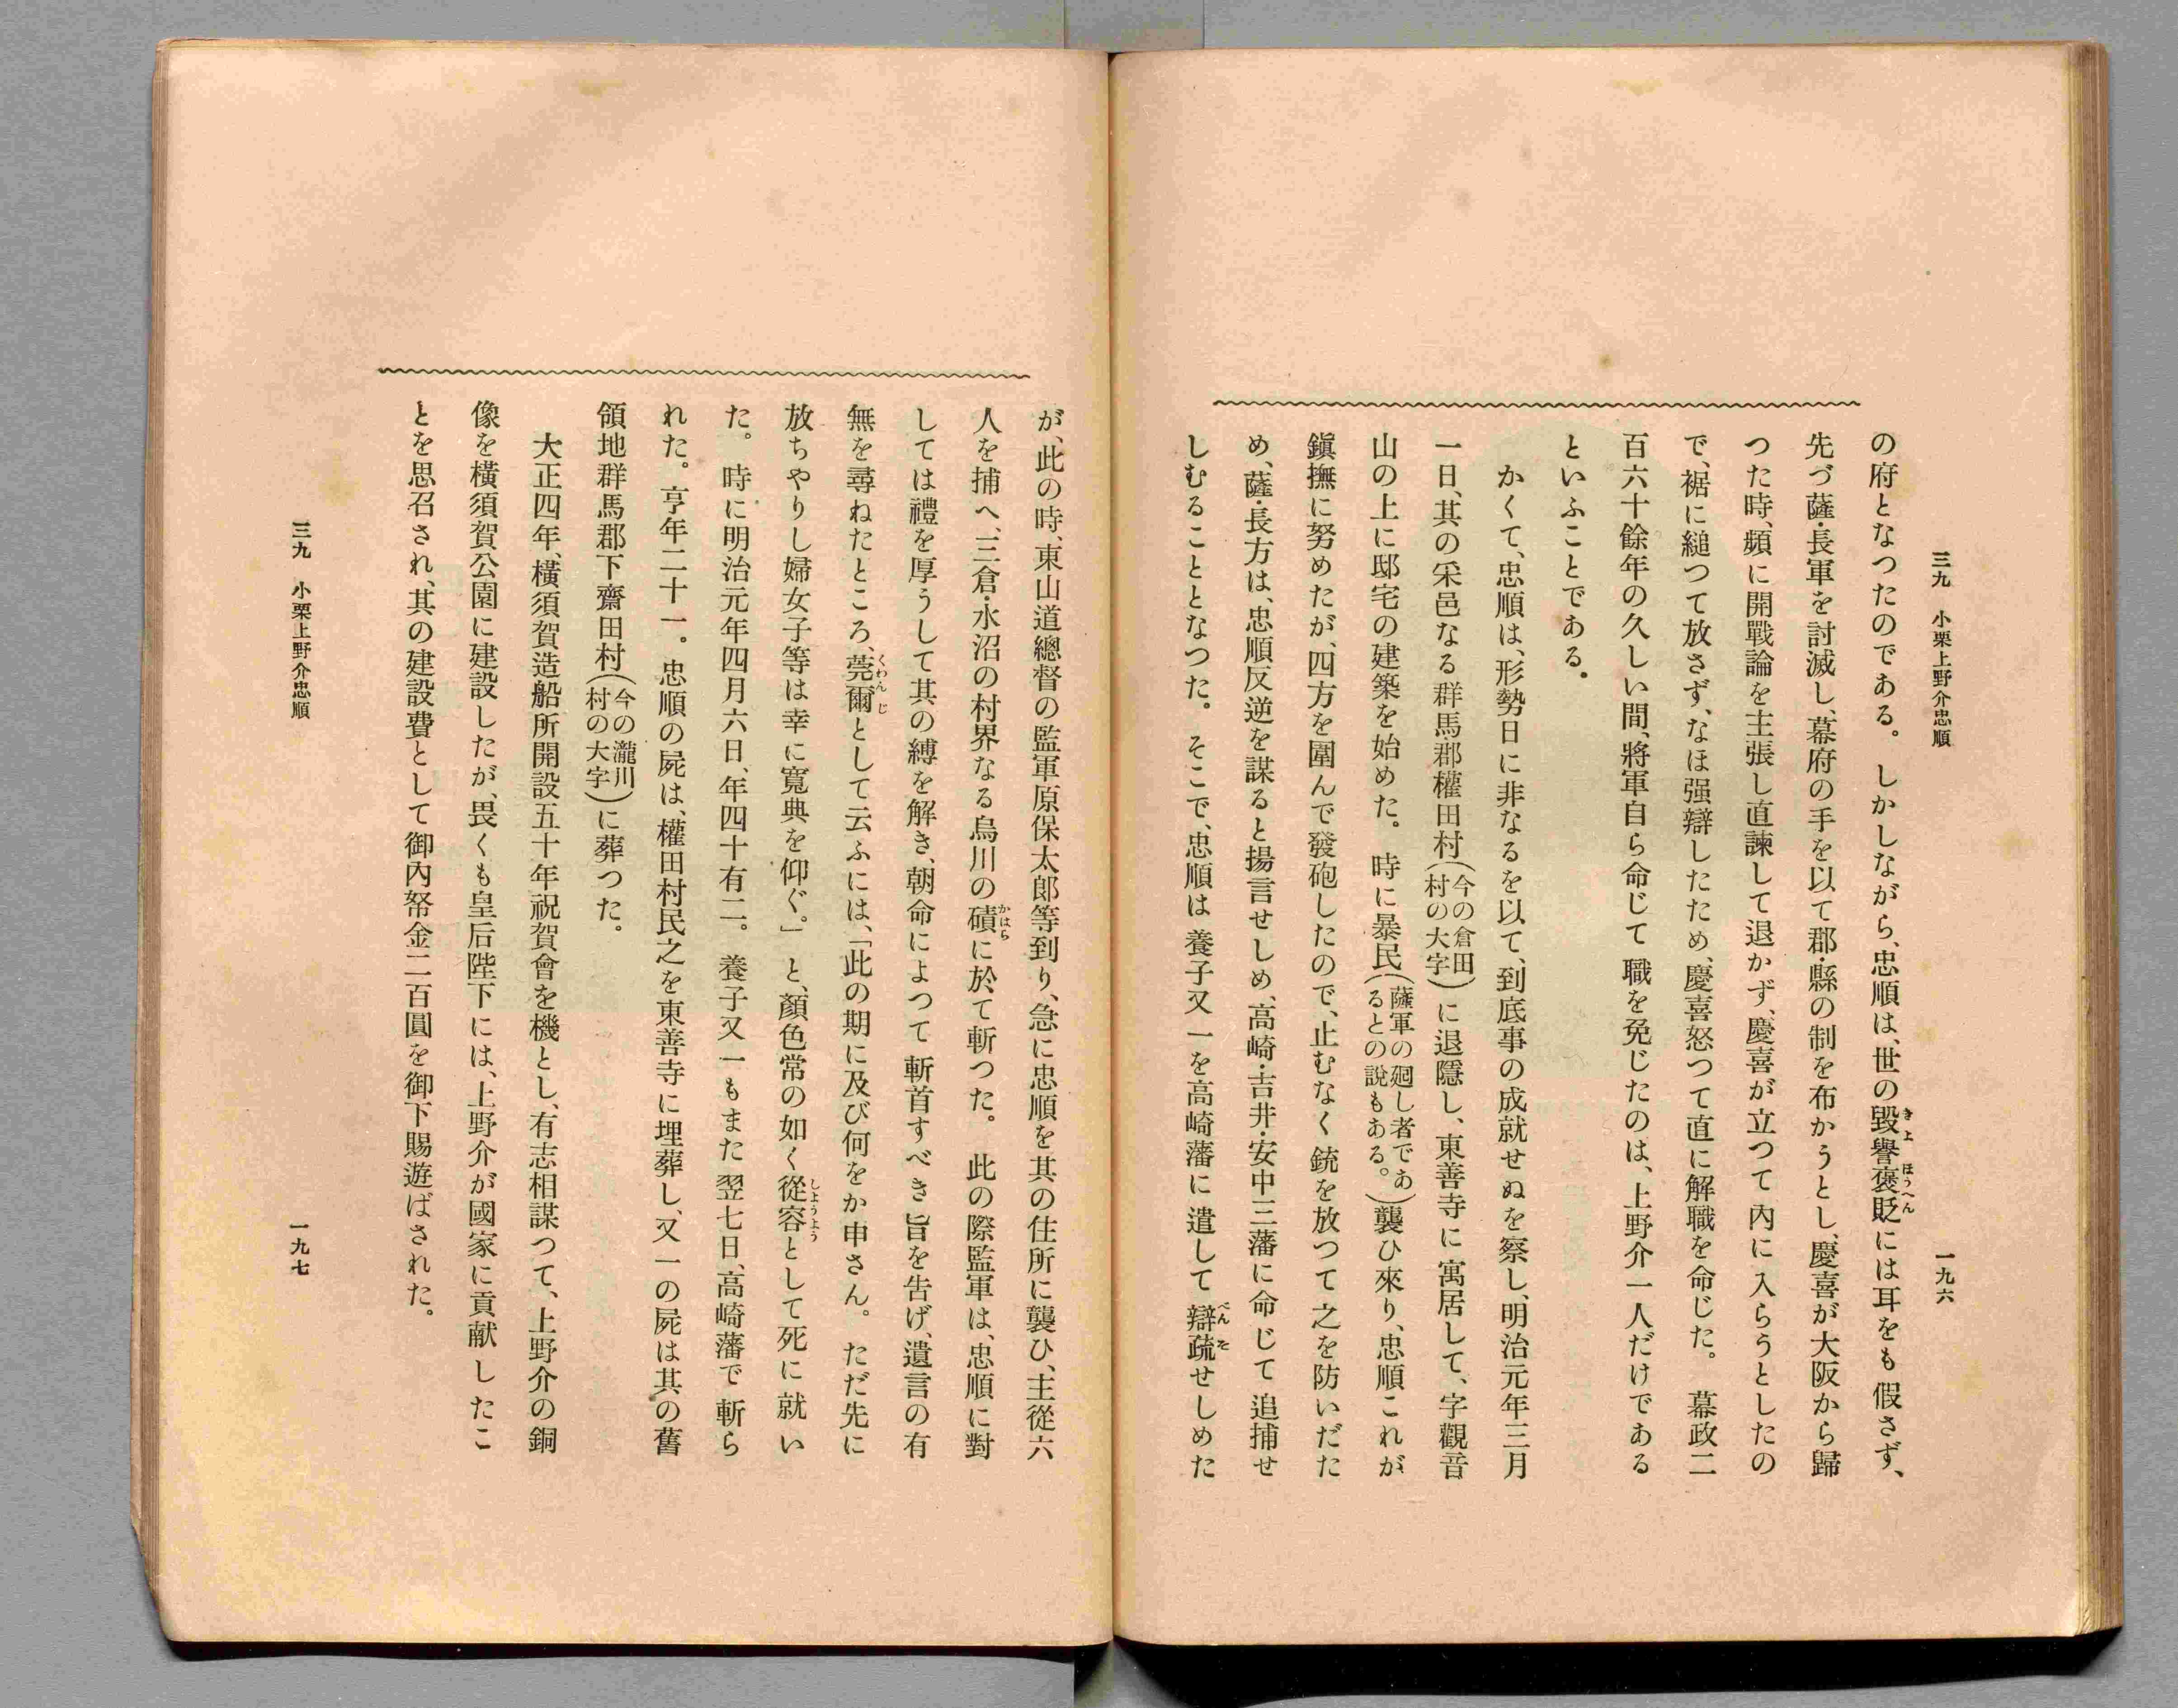 三九　小栗上野介忠順
一九六
の府となつたのである。しかしながら、忠順は、世の毀譽褒貶には耳をも假さず、
先づ薩・長軍を討滅し、幕府の手を以て郡・縣の制を布かうとし、慶喜が大阪から歸
つた時、頻に開戰論を主張し直諫して退かず、慶喜が立つて內に入らうとしたの
で、裾に縋つて放さず、なほ强辯したため、慶喜怒つて直に解職を命じた。幕政二
百六十餘年の久しい間、將軍自ら命じて職を免じたのは、上野介一人だけである
といふことである。
かくて、忠順は、形勢日に非なるを以て、到底事の成就せぬを察し、明治元年三月
一日、其の采邑なる群馬郡權田村(今の倉田村の大字)に退隱し、東善寺に寓居して、字觀音
山の上に邸宅の建築を始めた。時に暴民(薩軍の廻し者であるとの說もある。)襲ひ來り、忠順これが
鎭撫に努めたが、四方を圍んで發砲したので、止むなく銃を放つて之を防いだた
め、薩・長方は、忠順反逆を謀ると揚言せしめ、高崎・吉井・安中三藩に命じて追捕せ
しむることとなつた。そこで、忠順は養子又一を高崎藩に遣して辯疏せしめた
が、此の時、東山道總督の監軍原保太郞等到り、急に忠順を其の住所に襲ひ、主從六
人を捕へ、三倉・水沼の村界なる烏川の磧に於て斬つた。此の際監軍は、忠順に對
しては禮を厚うして其の縛を解き、朝命によつて斬首すべき旨を吿げ、遺言の有
無を尋ねたところ、莞爾として云ふには、「此の期に及び何をか申さん。ただ先に
放ちやりし婦女子等は幸に寬典を仰ぐ。」と、顏色常の如く從容として死に就い
た。時に明治元年四月六日、年四十有二。養子又一もまた翌七日、高崎藩で斬ら
れた。亨年二十一。忠順の屍は、權田村民之を東善寺に埋葬し、又一の屍は其の舊
領地群馬郡下齋田村(今の瀧川村の大字)に葬つた。
大正四年、橫須賀造船所開設五十年祝賀會を機とし、有志相謀つて、上野介の銅
像を橫須賀公園に建設したが、畏くも皇后陛下には、上野介が國家に貢献したこ
とを思召され、其の建設費として御內帑金二百圓を御下賜遊ばされた。
三九　小栗上野介忠順
一九七